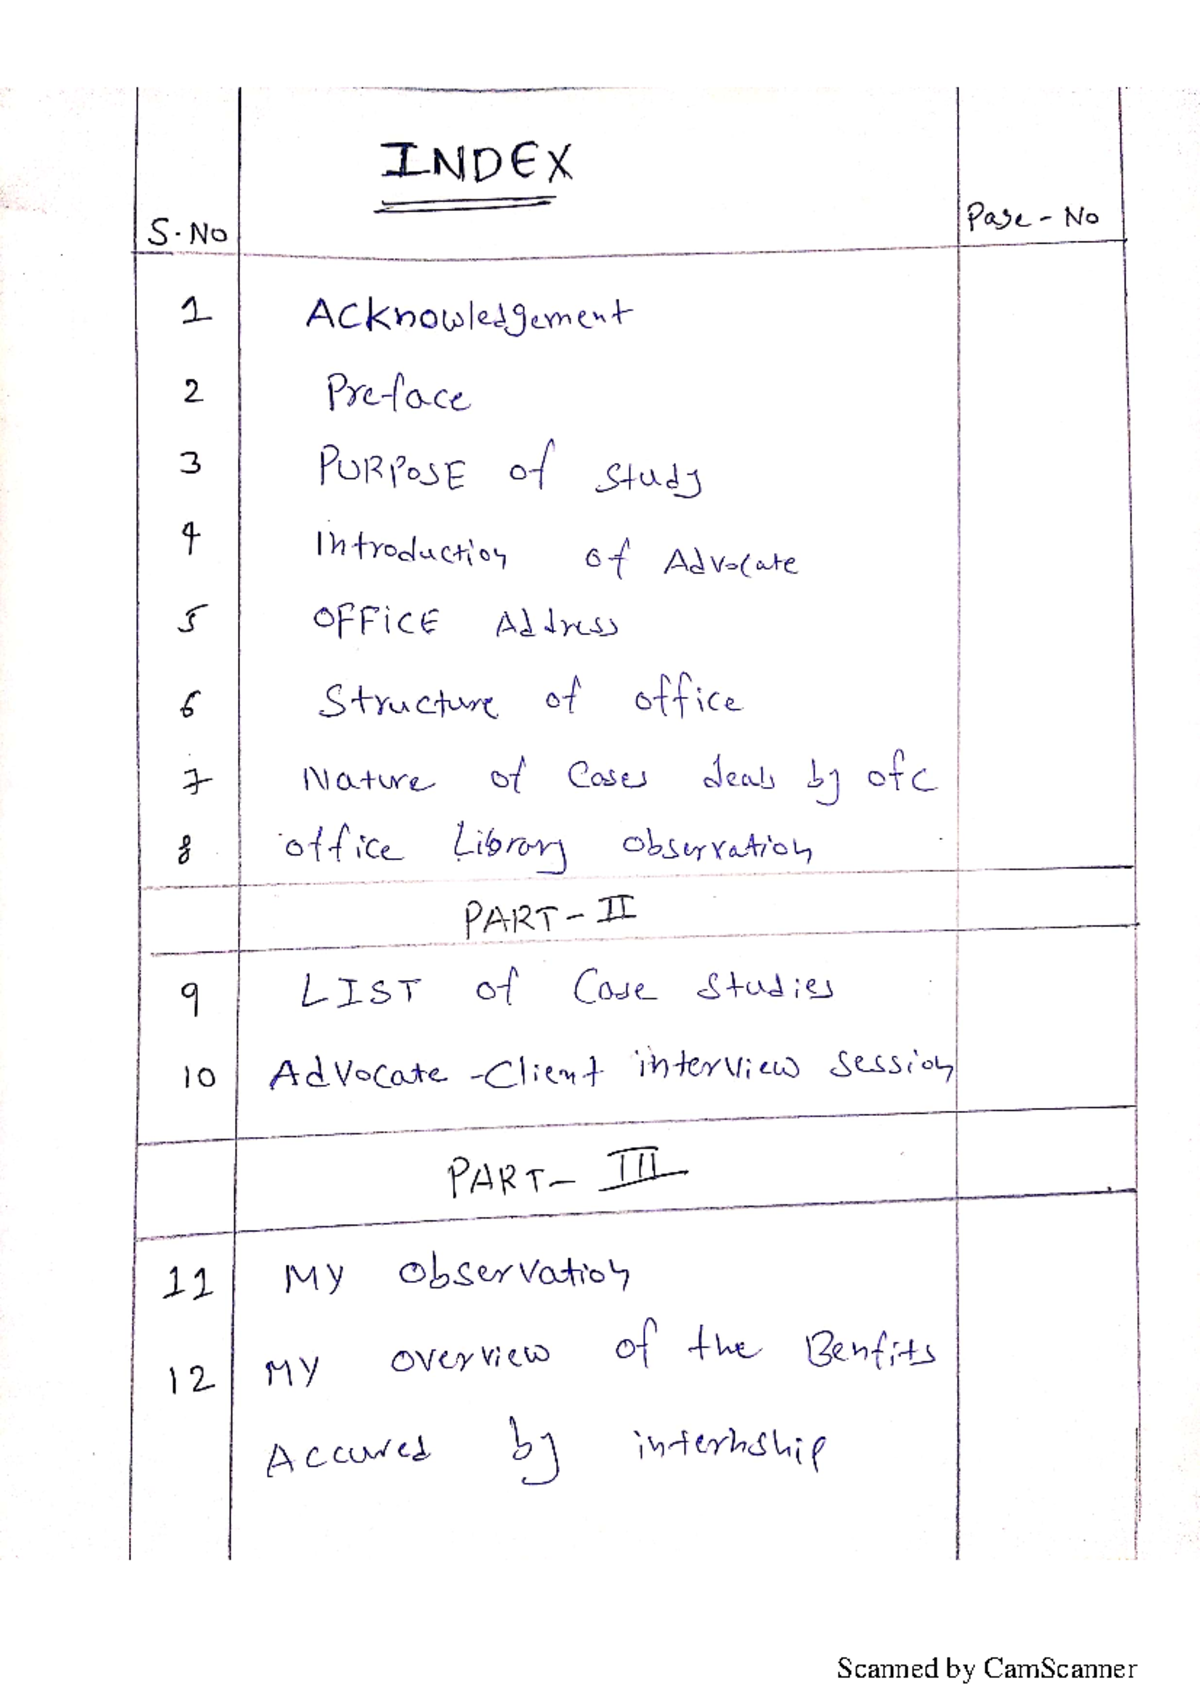 INDEX
S.No Page - No
1 Acknowledgement
2 Preface
3 PURPOSE of Study
4 Introduction of Advocate
5 OFFICE Address
6 Structure of office
7 Nature of Cases deals by ofc
8 office Library observation
PART - II
9 LIST of Case Studies
10 Advocate - Client interview session
PART - III
11 MY observation
12 MY overview of the Benfits
Accured by internship
Scanned by CamScanner